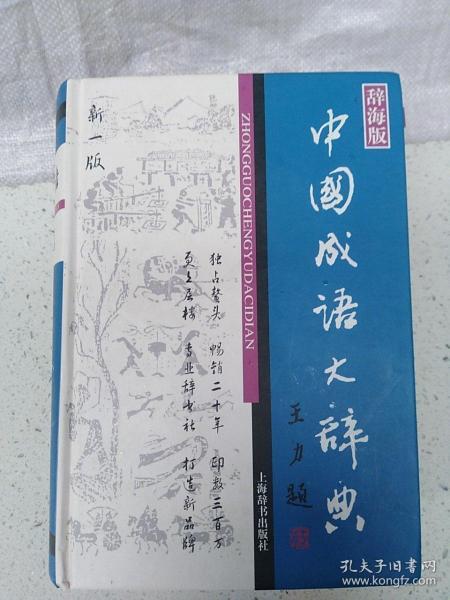 辞海版
中國成语大辞典
王力题
ZHONGGUOCHENGYUDACIDIAN
上海辞书出版社
新一版
独占鳌头 畅销二十年 印数三百万
更上层楼 专业辞书社 打造新品牌
孔夫子旧书网